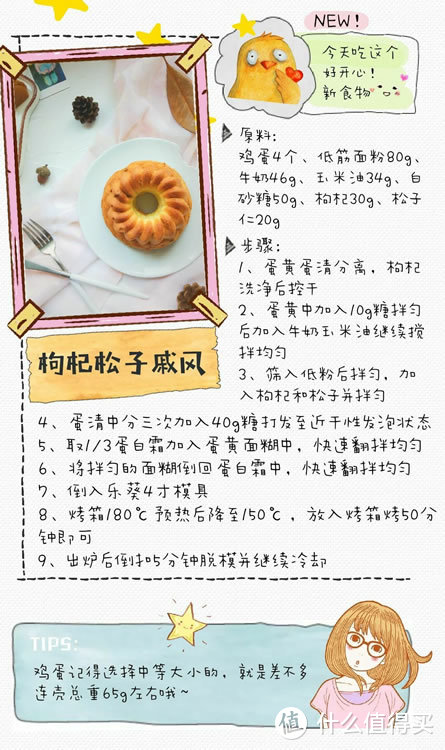 NEW!
今天吃这个
好开心!
新食物
原料:
鸡蛋4个、低筋面粉80g、
牛奶46g、玉米油34g、白
砂糖50g、枸杞30g、松子
仁20g
步骤:
1、蛋黄蛋清分离,枸杞
洗净后控干
2、蛋黄中加入10g糖拌匀
后加入牛奶玉米油继续搅
拌均匀
3、筛入低粉后拌匀,加
入枸杞和松子并拌匀
枸杞松子戚风
4、蛋清中分三次加入40g糖打发至近干性发泡状态
5、取1/3蛋白霜加入蛋黄面糊中,快速翻拌均匀
6、将拌匀的面糊倒回蛋白霜中,快速翻拌均匀
7、倒入乐葵4寸模具
8、烤箱180℃预热后降至150℃,放入烤箱烤50分
钟即可
9、出炉后倒扣5分钟脱模并继续冷却
TIPS:
鸡蛋记得选择中等大小的,就是差不多
连壳总重65g左右哦~
值 什么值得买